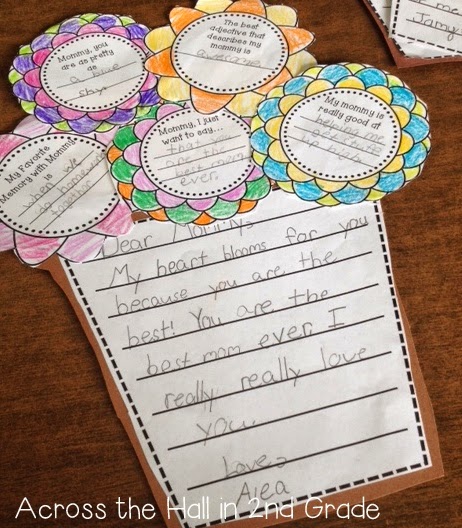 Mommy, you
are as pretty
as
a blue
sky
The best
adjective that
describes my
mommy is
awesome
My Favorite
Memory with Mommy
is
when we
go home
together
Mommy, I just
want to say...
that you
best mom
ever.
My mommy is
really good at
helping me
Dear Mommy,
My heart blooms for you
because you are the
best! You are the
best mom ever I
really really love
you.
Love,
Alea
me
Jamy
Across the Hall in 2nd Grade